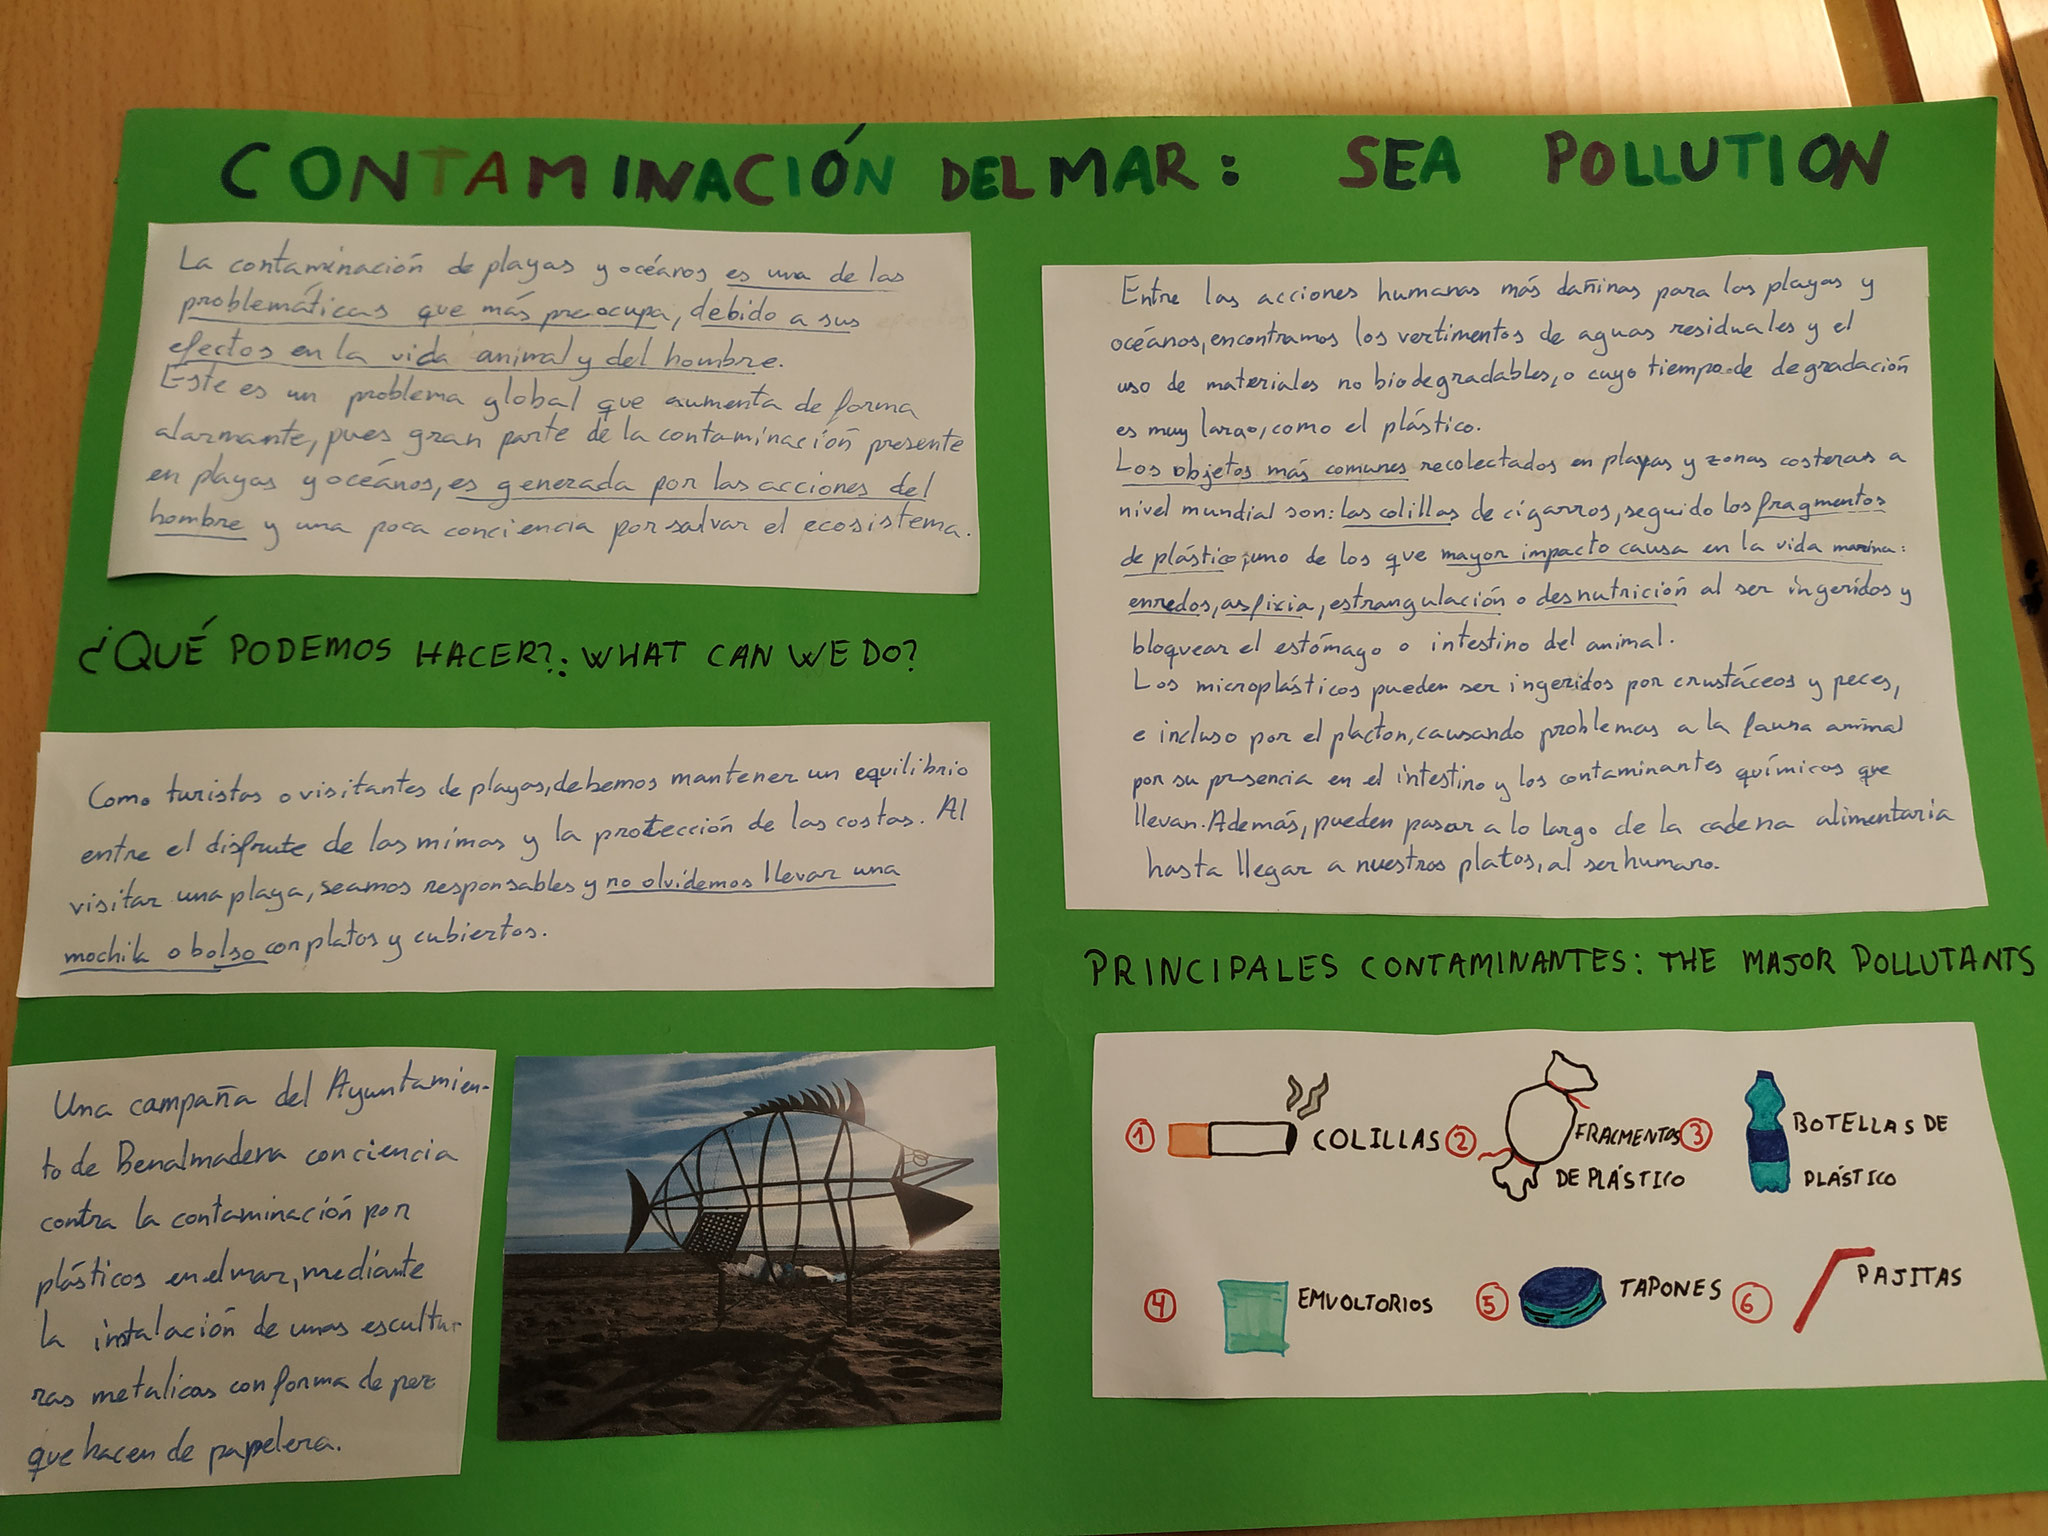 CONTAMINACIÓN DEL MAR: SEA POLLUTION
La contaminación de playas y océanos es una de las
problemáticas que más preocupa, debido a sus
efectos en la vida animal y del hombre.
Este es un problema global que aumenta de forma
alarmante, pues gran parte de la contaminación presente
en playas y océanos, es generada por las acciones del
hombre y una poca conciencia por salvar el ecosistema.
¿QUÉ PODEMOS HACER?: WHAT CAN WE DO?
Como turistas o visitantes de playas, debemos mantener un equilibrio
entre el disfrute de las mimas y la protección de las costas. Al
visitar una playa, seamos responsables y no olvidemos llevar una
mochila o bolso con platos y cubiertos.
Una campaña del Ayuntamien-
to de Benalmadena conciencia
contra la contaminación por
plásticos en el mar, mediante
la instalación de unas escultu
ras metalicas con forma de pez
que hacen de papelera.
Entre las acciones humanas más dañinas para las playas y
océanos, encontramos los vertimentos de aguas residuales y el
uso de materiales no biodegradables, o cuyo tiempo de degradación
es muy largo, como el plástico.
Los objetos más comunes recolectados en playas y zonas costeras a
nivel mundial son: las colillas de cigarros, seguido los fragmentos
de plástico, uno de los que mayor impacto causa en la vida marina:
enredos, asfixia, estrangulación o desnutrición al ser ingeridos y
bloquear el estómago o intestino del animal.
Los microplásticos pueden ser ingeridos por crustáceos y peces,
e incluso por el placton, causando problemas a la fauna animal
por su presencia en el intestino y los contaminantes químicos que
llevan. Además, pueden pasar a lo largo de la cadena alimentaria
hasta llegar a nuestros platos, al ser humano.
PRINCIPALES CONTAMINANTES: THE MAJOR POLLUTANTS
1 COLILLAS
2 FRAGMENTOS
DE PLÁSTICO
3 BOTELLAS DE
PLÁSTICO
4 EMVOLTORIOS
5 TAPONES
6 PAJITAS